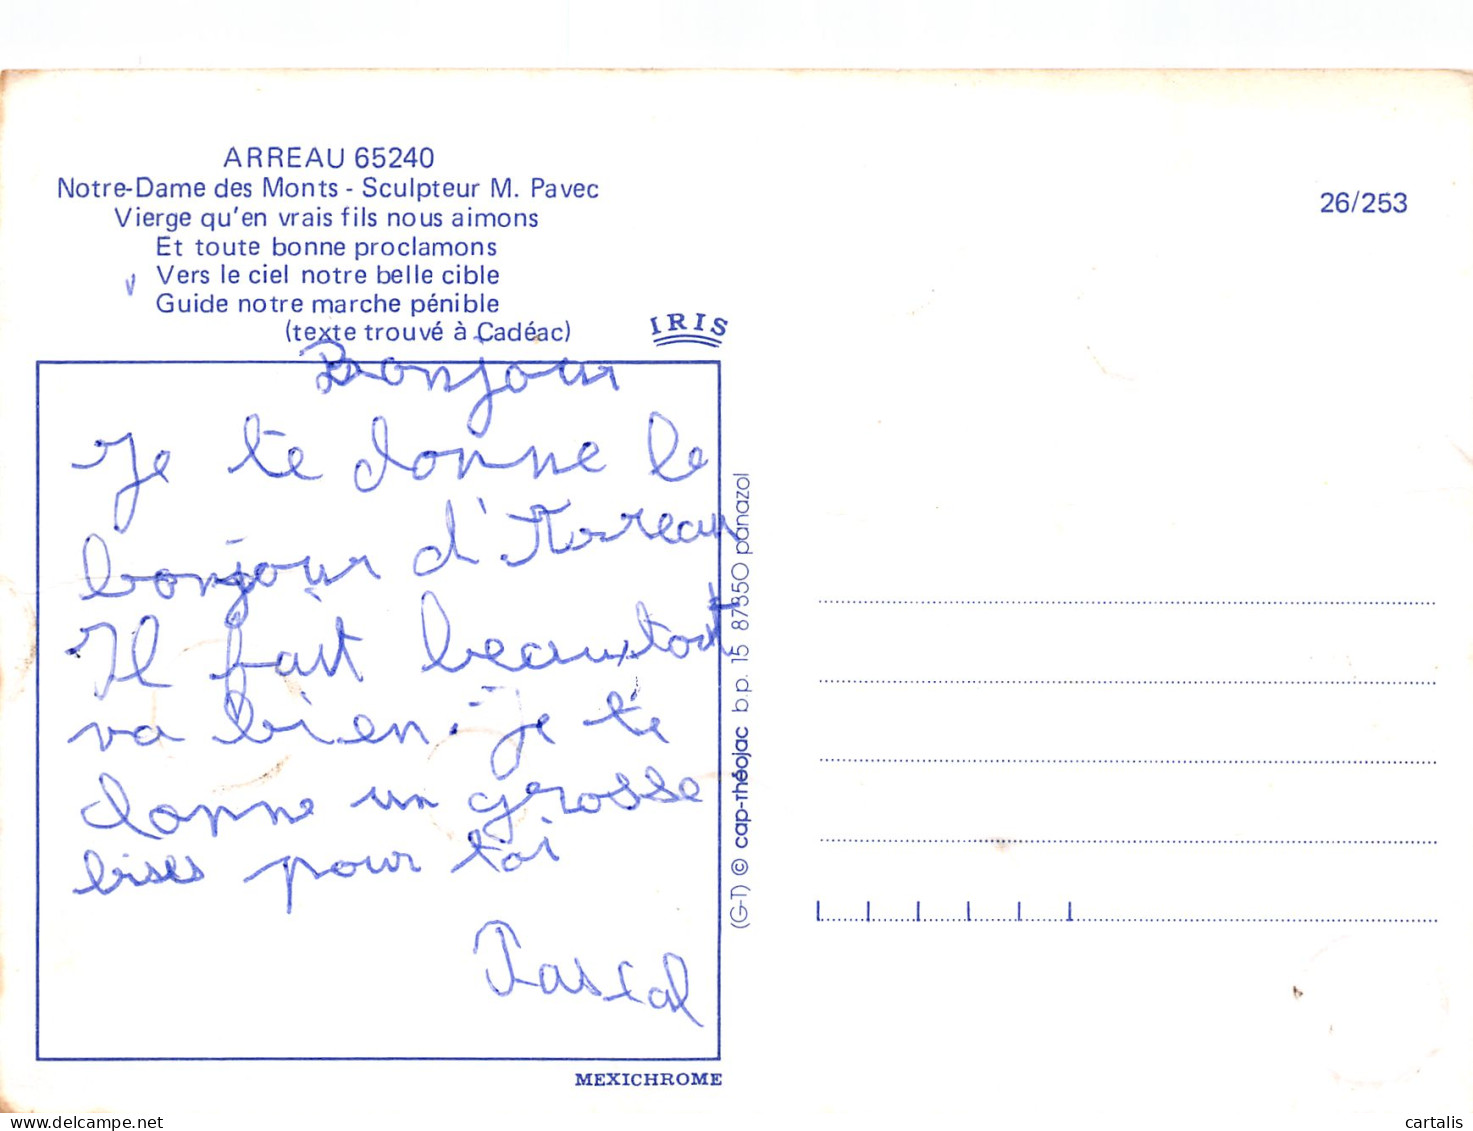 ARREAU 65240
Notre-Dame des Monts - Sculpteur M. Pavec
Vierge qu'en vrais fils nous aimons
Et toute bonne proclamons
Vers le ciel notre belle cible
Guide notre marche pénible
(texte trouvé à Cadéac)
26/253
IRIS
Bonjour
Je te donne le
bonjour d'Arreau
Il fait beau, tout
va bien. je te
donne un grosse
bises pour toi
Pascal
(G-T) © cap-théojac b.p. 15 87350 panazol
MEXICHROME
www.delcampe.net
cartalis